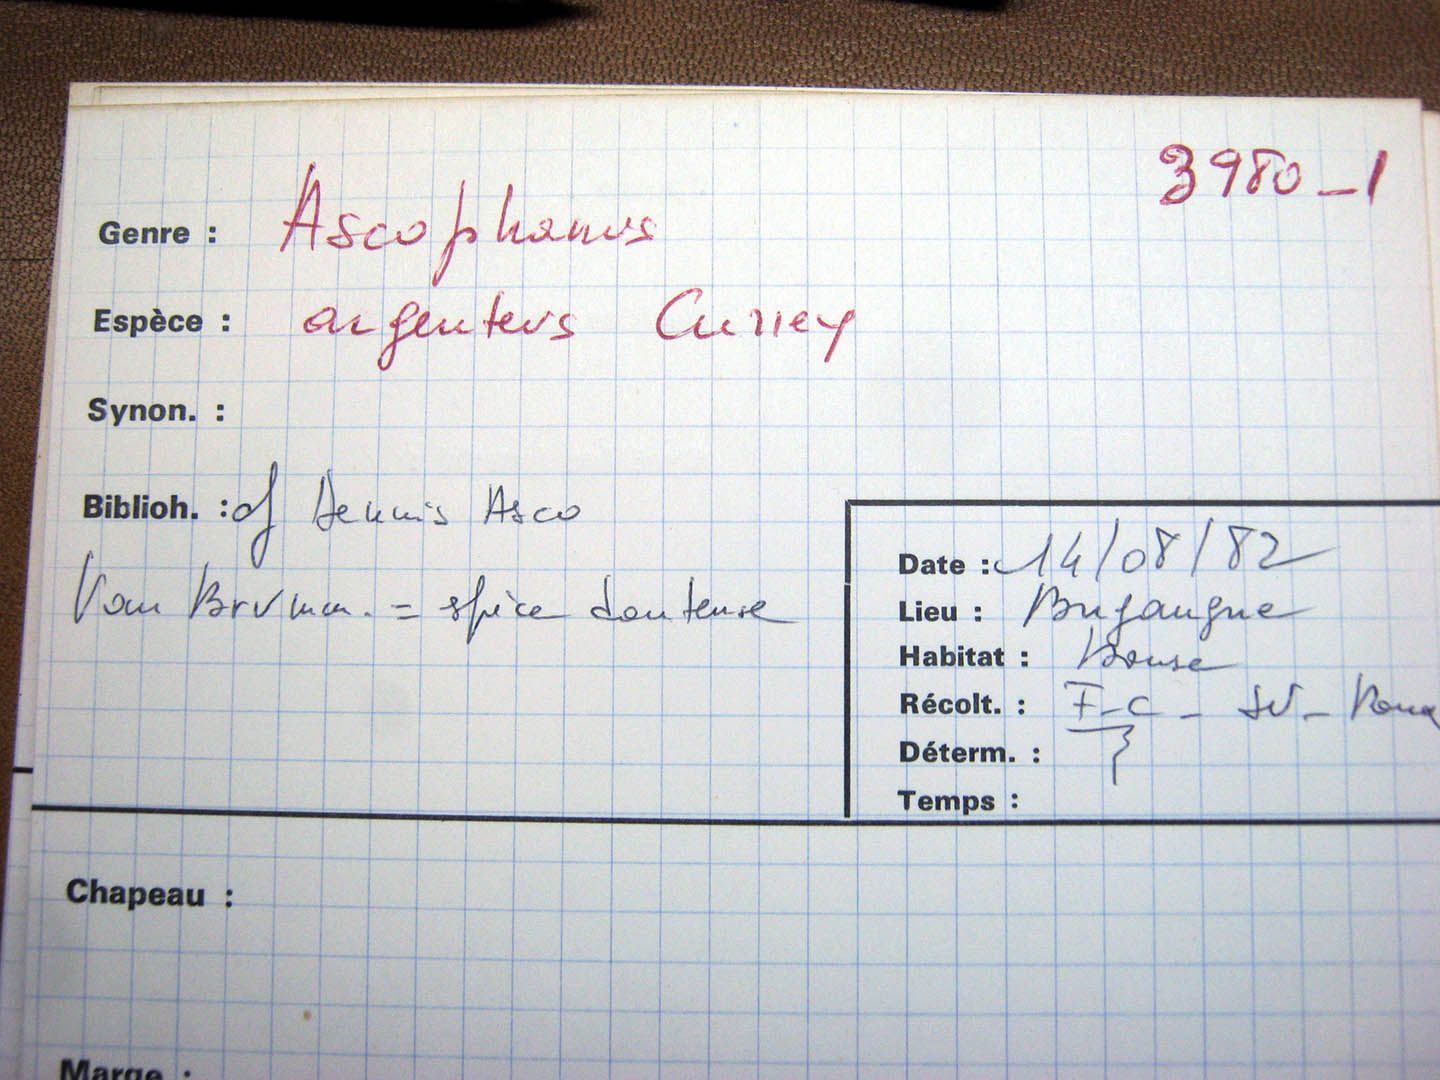 3980-1
Genre : Ascophanus
Espèce : argenteus Currey
Synon. :
Biblioh. : cf Dennis Asco
Van Brumm. = espèce douteuse
Date : 14/08/82
Lieu :
Habitat : Bouse
Récolt. : F-C -
Déterm. :
Temps :
Chapeau :
Marge :